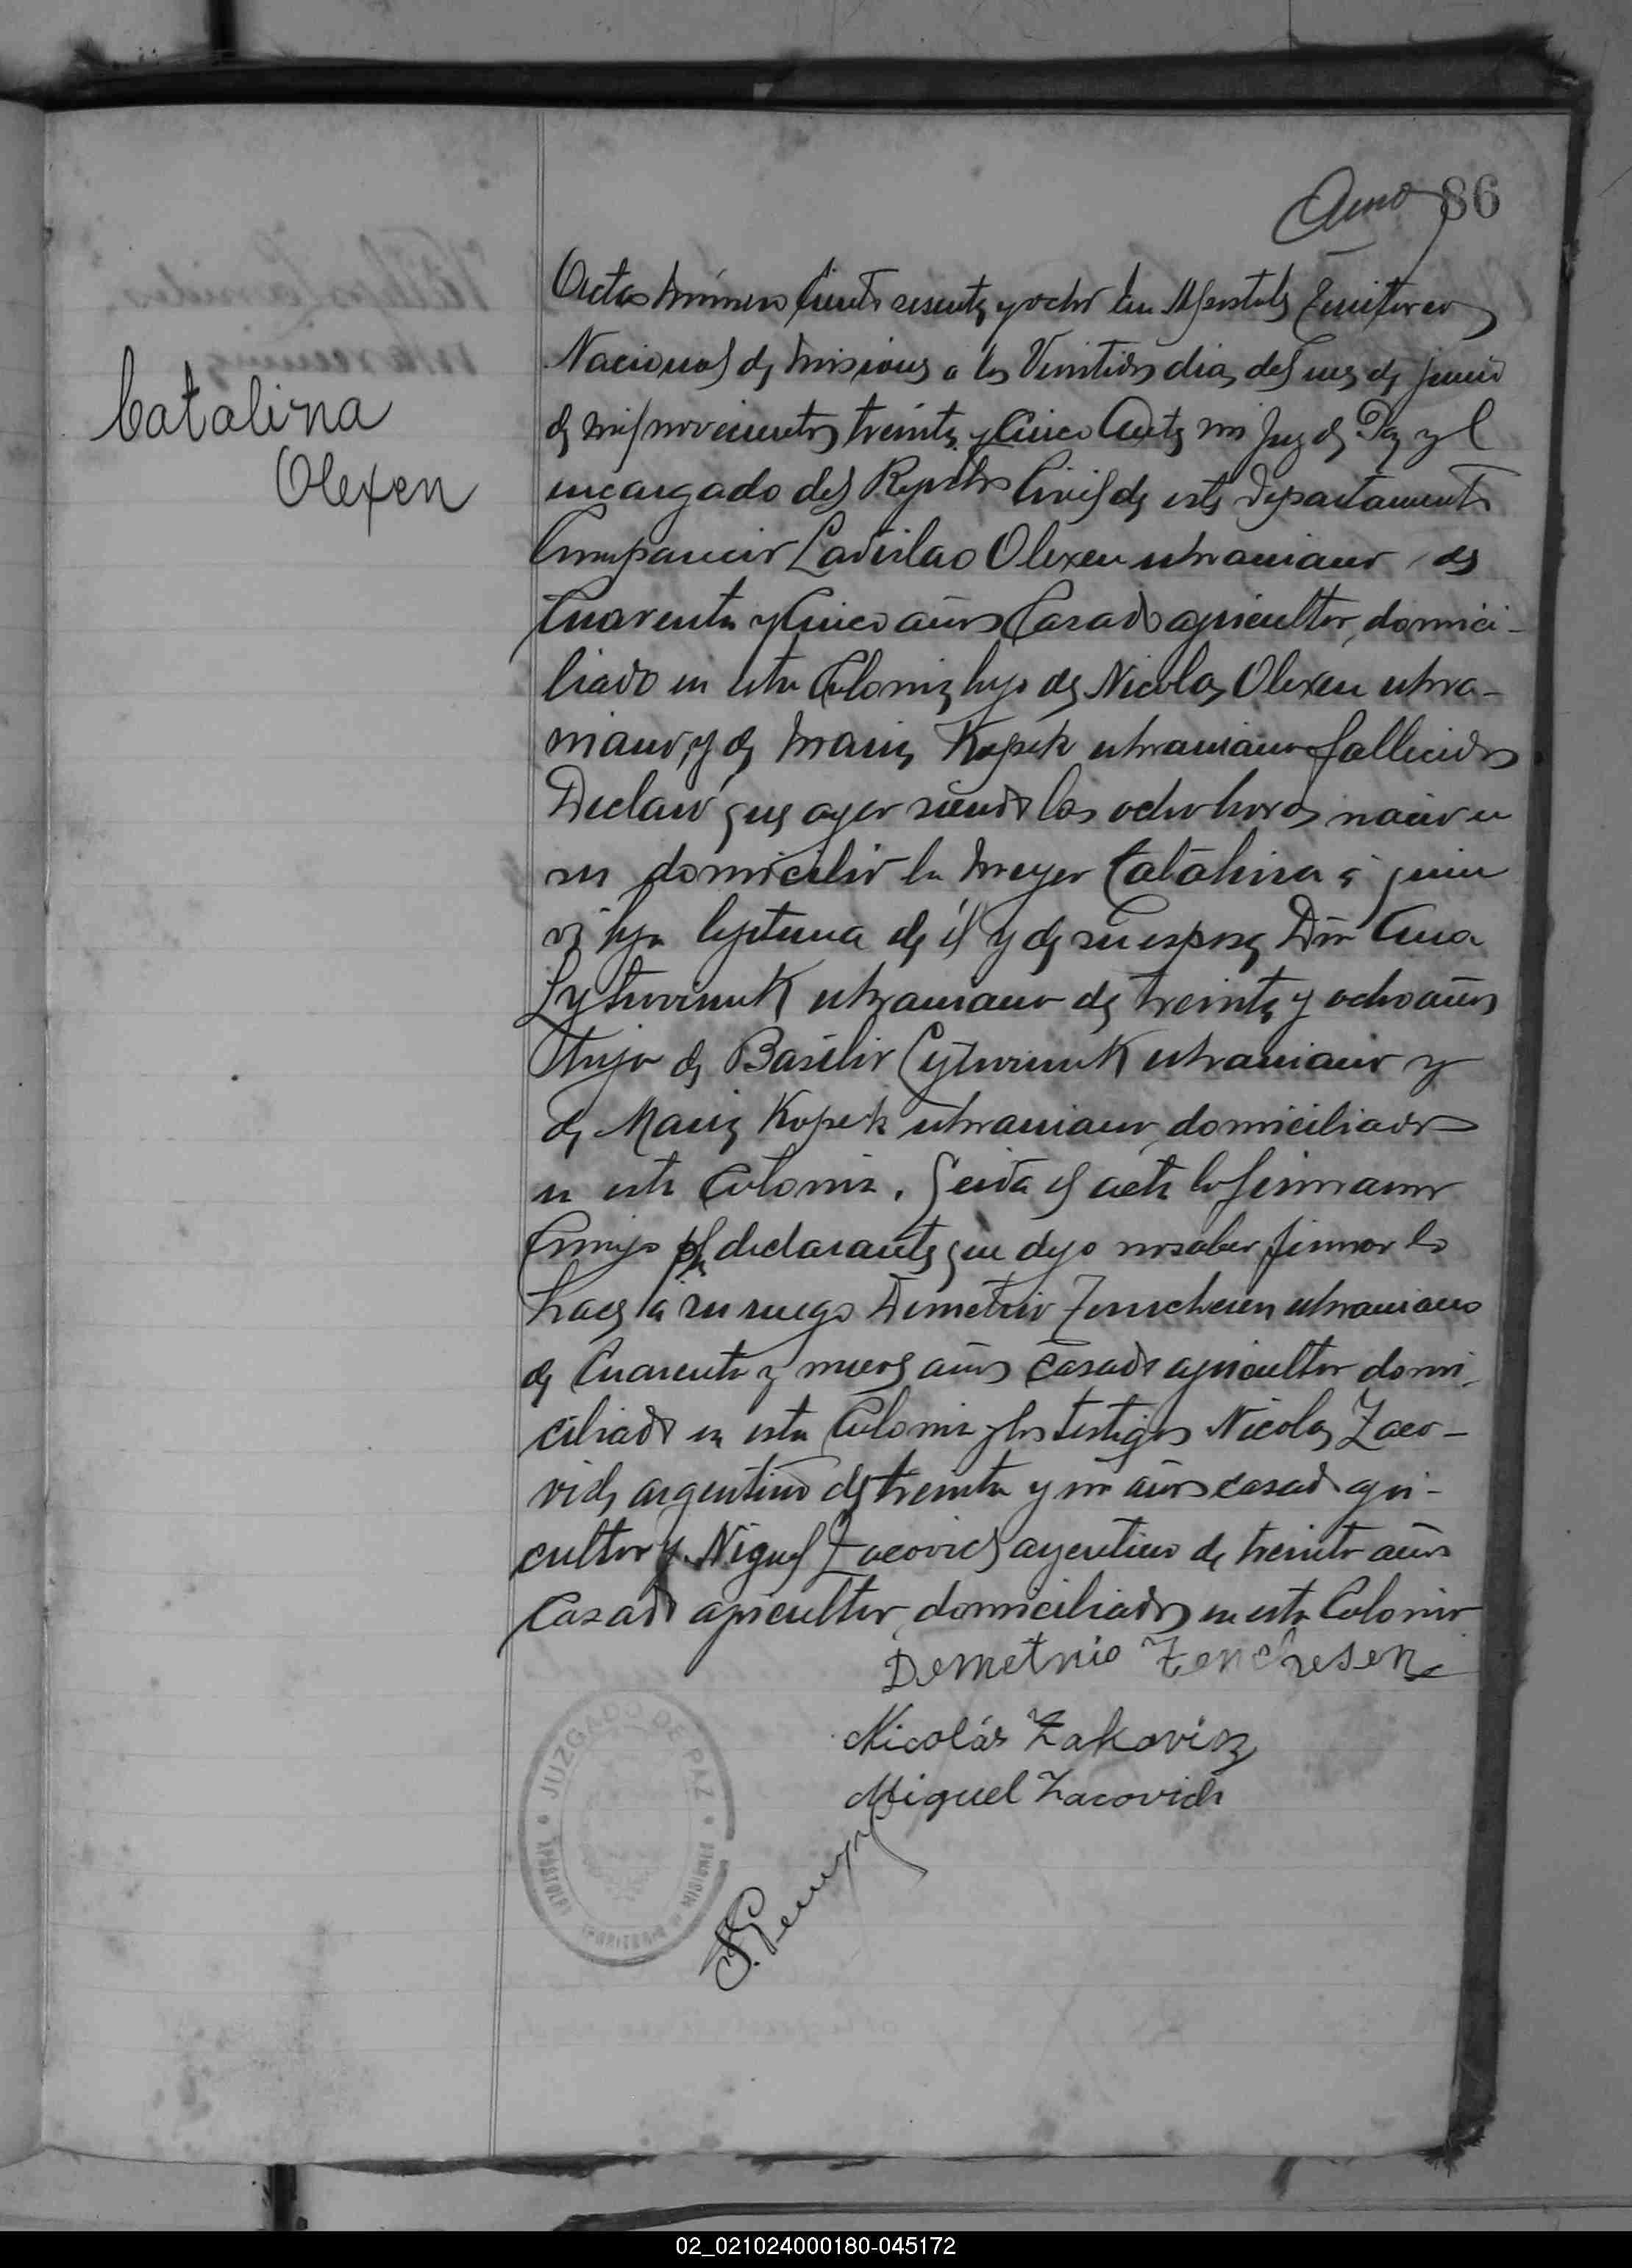 86
Acta número Ciento sesenta y ocho En Apostoles Territorio
Nacional de Misiones a los Veintidos dias del mes de junio
de mil novecientos treinta y Cinco Ante mi Juez de Paz y
encargado del Registro Civil de este departamento
Compareció Ladislao Olexen ukraniano de
Cuarenta y Cinco años Casado agricultor, domici-
liado en esta Colonia hijo de Nicolas Olexen ukra-
niano, y de Maria Kopek ukraniano fallecidos
Declaró que ayer siendo las ocho horas nació en
su domicilio la mujer Catalina
hija legitima de él y de su esposa Dña Ana
Lytwinuk ukraniano de treinta y ocho años
hija de Basilio Lytwinuk ukraniano y
de Maria Kopek ukraniano, domiciliados
en esta Colonia. Leida el acta la firmaron
Conmigo declarante que dijo no saber firmar lo
hace a su ruego Demetrio ukraniano
de Cuarenta y nueve años Casado agricultor domi-
ciliado en esta Colonia y los testigos Nicolas Zaco-
vich argentino de treinta y un años casado agri-
cultor y Miguel Zacovich argentino de treinta años
Casado agricultor, domiciliados en esta Colonia
Catalina
Olexen
Demetrio
Nicolás Zakovicz
Miguel Zacovich
JUZGADO DE PAZ
APOSTOLES TERRITORIO DE MISIONES
02_021024000180-045172